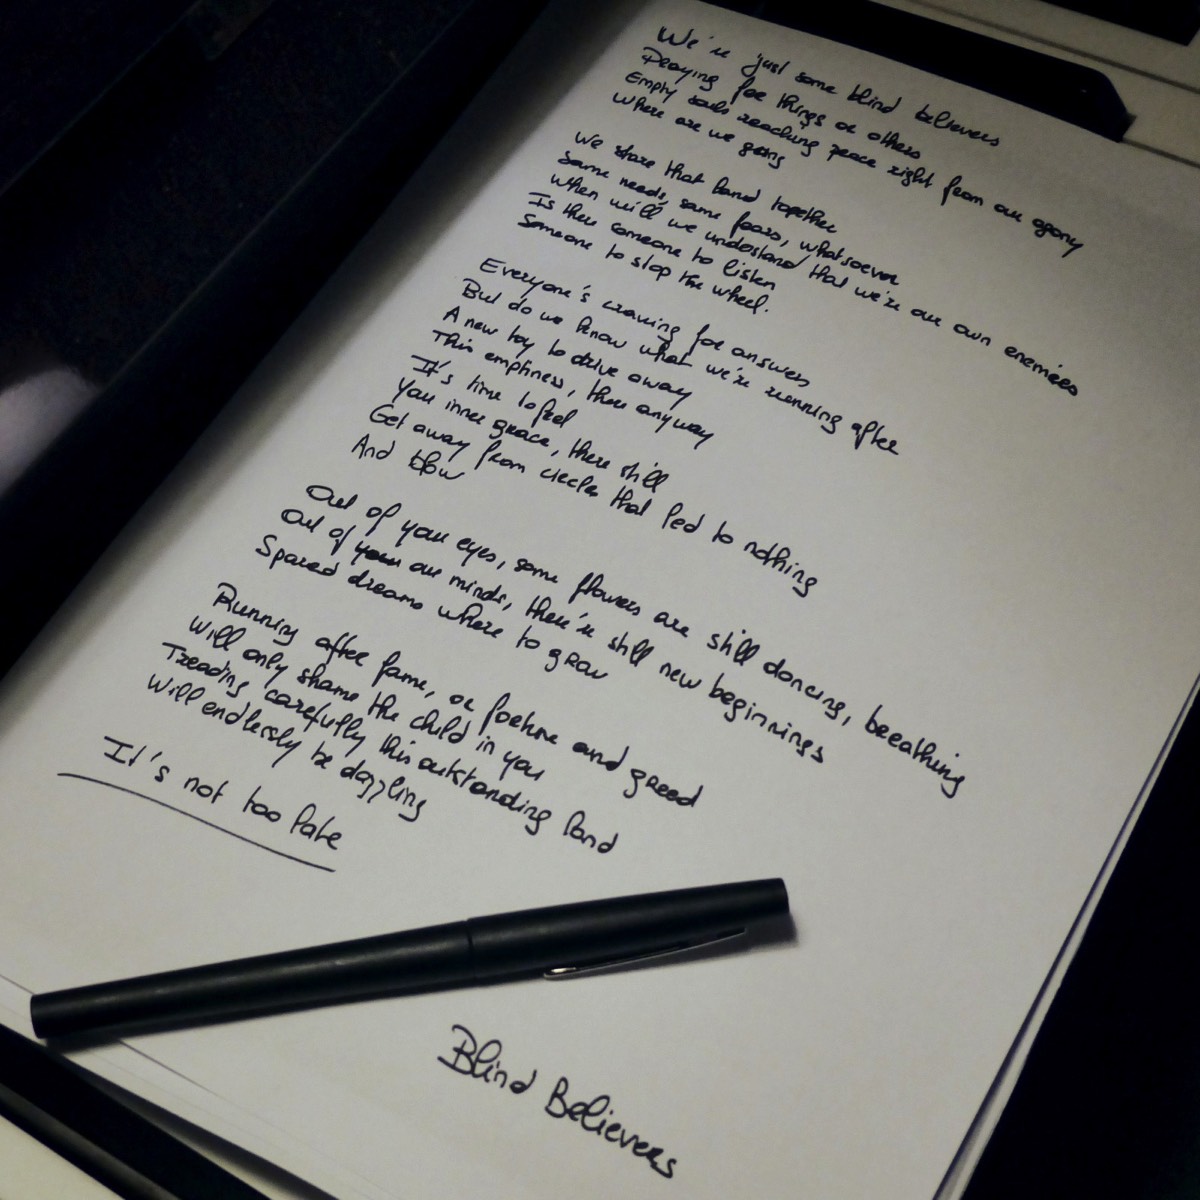 We're just some blind believers
Praying for things or others
Empty souls reaching peace right from our agony
Where are we going
We share that land together
Same needs, same fears, whatsoever
When will we understand that we're our own enemies
Is there someone to listen
Someone to stop the wheel.
Everyone's craving for answers
But do we know what we're running after
A new toy to drive away
This emptiness, there anyway
It's time to feel
Your inner grace, there still
Get away from circles that led to nothing
And blow
Out of your eyes, some flowers are still dancing, breathing
Out of our minds, there're still new beginnings
Spared dreams where to grow
Running after fame, or fortune and greed
Will only shame the child in you
Treading carefully this outstanding land
Will endlessly be dazzling
It's not too late
Blind Believers